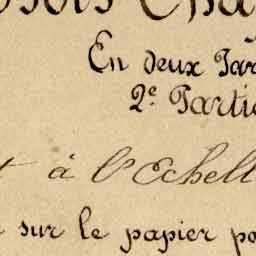 En deux Par
2e Partie
t à l'Echell
sur le papier po